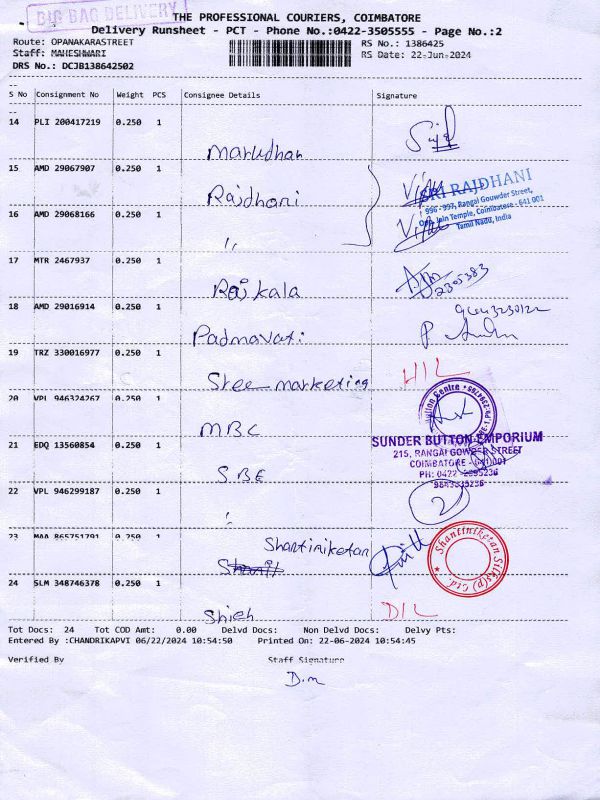 BIG BAG DELIVERY
THE PROFESSIONAL COURIERS, COIMBATORE
Delivery Runsheet - PCT - Phone No.:0422-3505555 - Page No.:2
Route: OPANAKARASTREET RS No.: 1386425
Staff: MAHESHWARI RS Date: 22-Jun-2024
DRS No.: DCJB138642502
S No Consignment No Weight PCS Consignee Details Signature
14 PLI 200417219 0.250 1
Marudhar
15 AMD 29067907 0.250 1
Rajdhani
SRI RAJDHANI
996 - 997, Rangai Gouwder Street,
Opp. Jain Temple, Coimbatore - 641 001
Tamil Nadu, India
16 AMD 29068166 0.250 1
"
17 MTR 2467937 0.250 1
Raj kala
2305383
18 AMD 29016914 0.250 1
Padmavati
19 TRZ 330016977 0.250 1
Sree marketing
20 VPL 946324267 0.250 1
MBC
SUNDER BUTTON EMPORIUM
215, RANGAI GOWDER STREET
COIMBATORE - 641 001
21 EDQ 13560854 0.250 1
S.BE
22 VPL 946299187 0.250 1
2
23 MAA 865751791 0.250 1
Shantiniketan
Shantiniketan Silks (p) Ltd.
24 SLM 348746378 0.250 1
Tot Docs: 24 Tot COD Amt: 0.00 Delvd Docs: Non Delvd Docs: Delvy Pts:
Entered By :CHANDRIKAPVI 06/22/2024 10:54:50 Printed On: 22-06-2024 10:54:45
Verified By Staff Signature
D.m